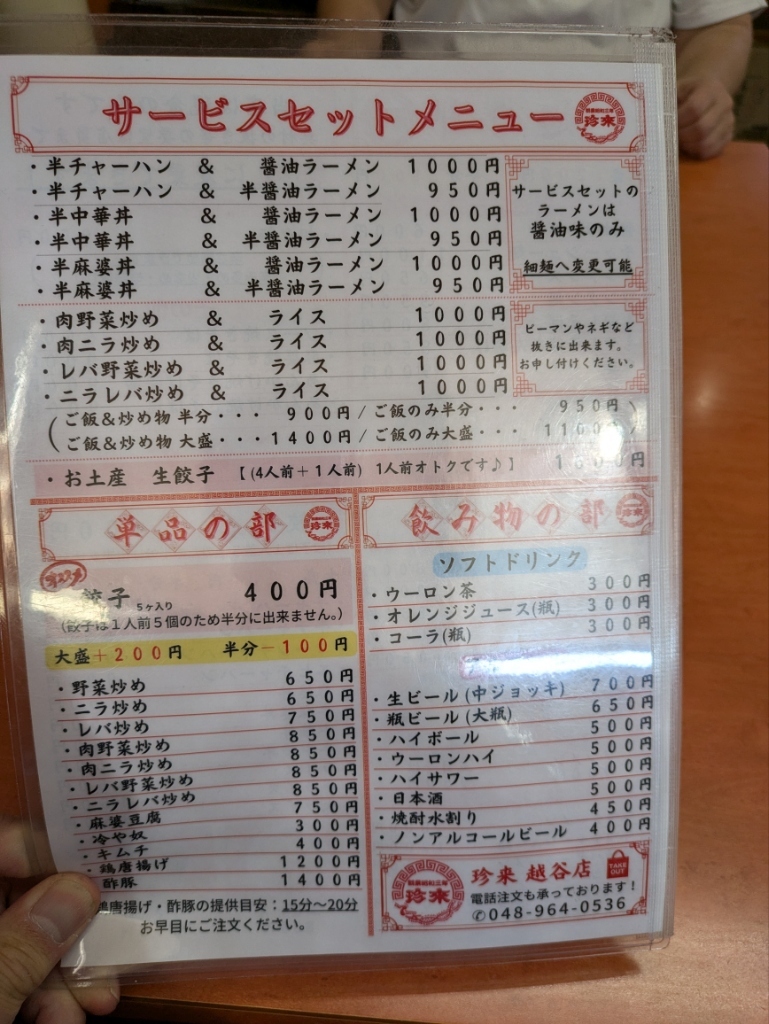 サービスセットメニュー
珍來
・半チャーハン & 醤油ラーメン 1000円
・半チャーハン & 半醤油ラーメン 950円
・半中華丼 & 醤油ラーメン 1000円
・半中華丼 & 半醤油ラーメン 950円
・半麻婆丼 & 醤油ラーメン 1000円
・半麻婆丼 & 半醤油ラーメン 950円
サービスセットの
ラーメンは
醤油味のみ
細麺へ変更可能
・肉野菜炒め & ライス 1000円
・肉ニラ炒め & ライス 1000円
・レバ野菜炒め & ライス 1000円
・ニラレバ炒め & ライス 1000円
ピーマンやネギなど
抜きに出来ます。
お申し付けください。
(ご飯&炒め物 半分・・・ 900円/ご飯のみ半分・・・ 950円)
ご飯&炒め物 大盛・・・1400円/ご飯のみ大盛・・・
・お土産 生餃子 【(4人前+1人前) 1人前オトクです♪】
単品の部
珍來
オススメ
餃子 5ヶ入り 400円
(餃子は1人前5個のため半分に出来ません。)
大盛+200円 半分-100円
・野菜炒め 650円
・ニラ炒め 650円
・レバ炒め 750円
・肉野菜炒め 850円
・肉ニラ炒め 850円
・レバ野菜炒め 850円
・ニラレバ炒め 850円
・麻婆豆腐 750円
・冷や奴 300円
・キムチ 400円
・鶏唐揚げ 1200円
・酢豚 1400円
鶏唐揚げ・酢豚の提供目安:15分〜20分
お早目にご注文ください。
飲み物の部
珍來
ソフトドリンク
・ウーロン茶 300円
・オレンジジュース(瓶) 300円
・コーラ(瓶) 300円
・生ビール(中ジョッキ) 700円
・瓶ビール(大瓶) 650円
・ハイボール 500円
・ウーロンハイ 500円
・ハイサワー 500円
・日本酒 500円
・焼酎水割り 450円
・ノンアルコールビール 400円
珍來
珍來 越谷店
TAKE OUT
電話注文も承っております!
✆048-964-0536